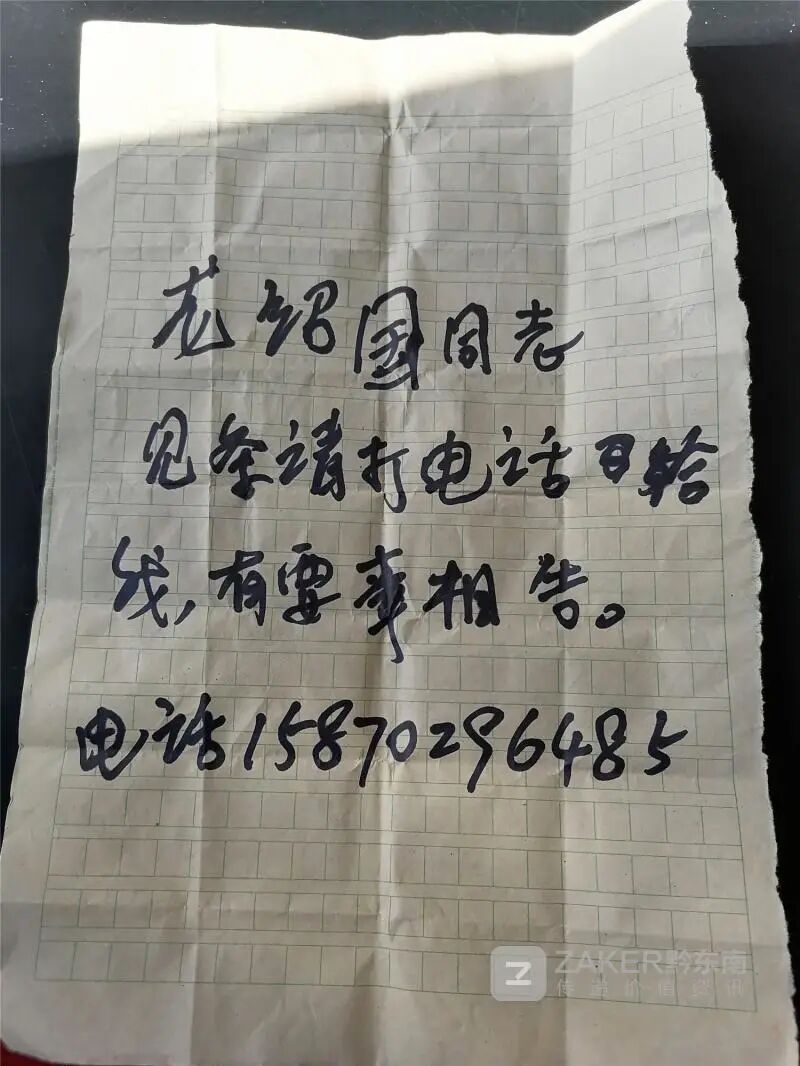 龙绍国同志
见条请打电话给
我,有要事相告。
电话15870296485
ZAKER黔东南
传递价值资讯